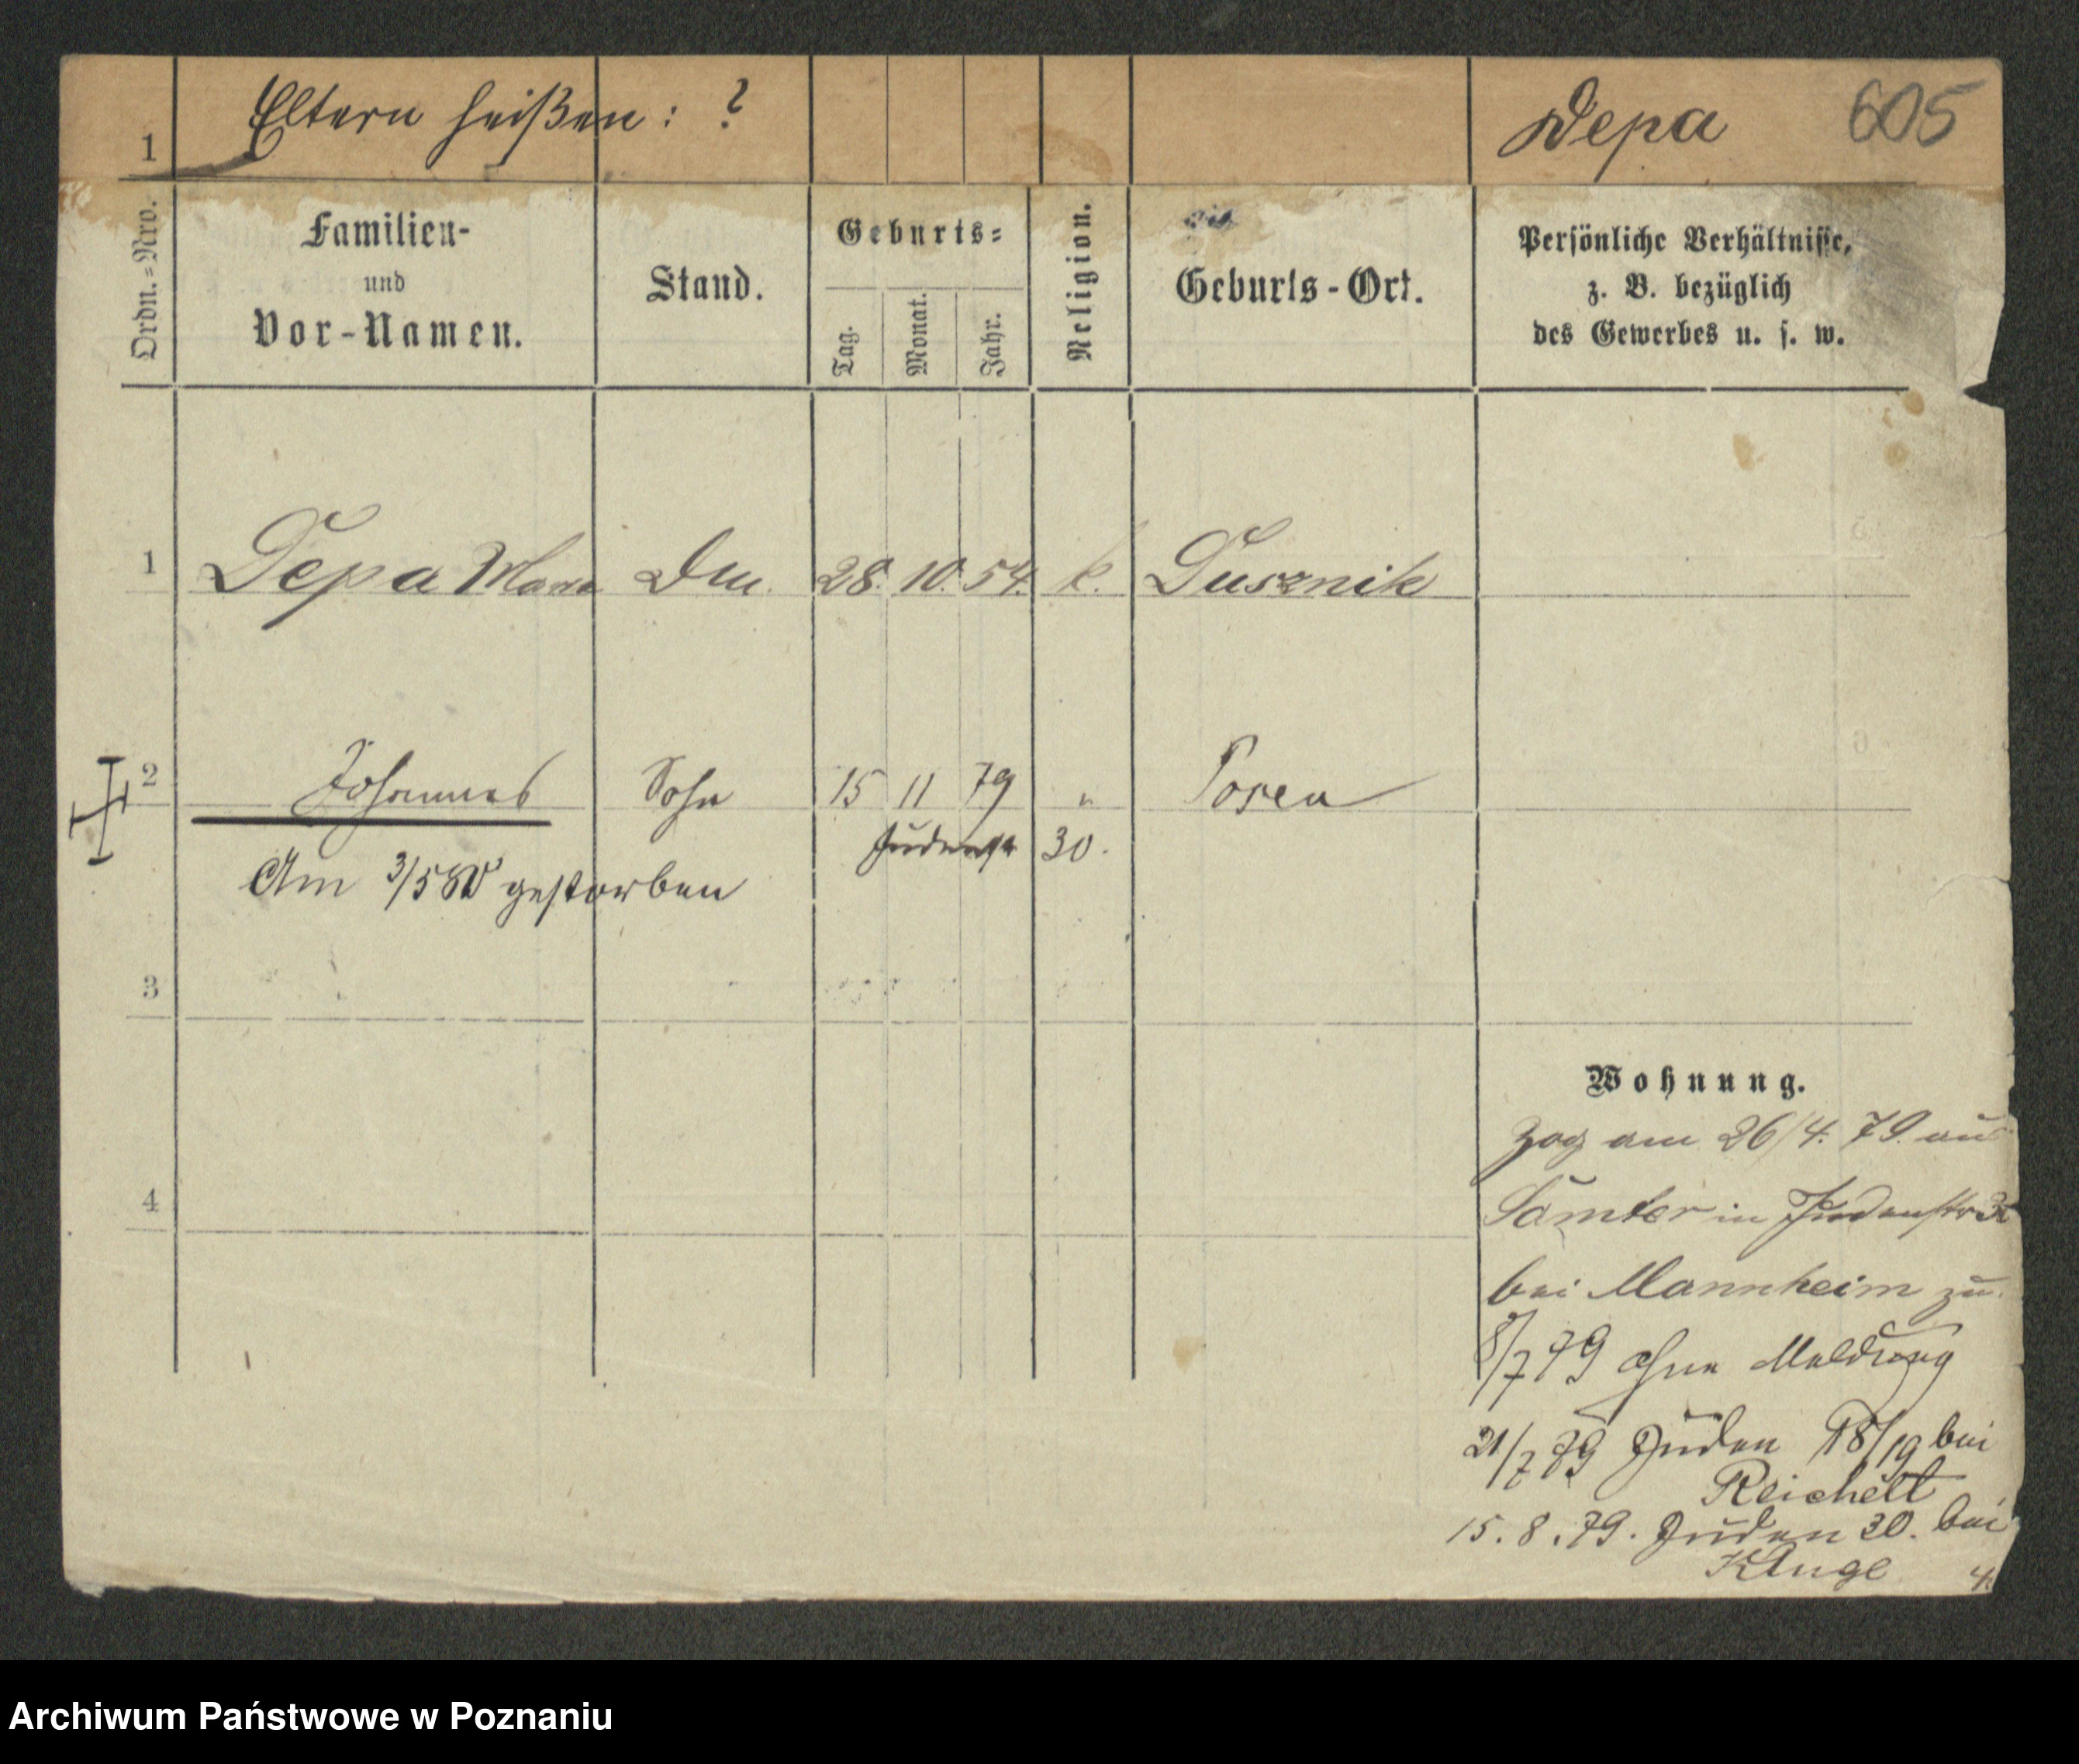 1 Eltern heißen: ? Depa 605
Ordn.=Nro. Familien- und Vor-Namen. Stand. Geburts= Tag. Monat. Jahr. Religion. Geburts-Ort. Persönliche Verhältnisse, z. B. bezüglich des Gewerbes u. s. w.
1 Depa Maria 28. 10. 54. k. Dusznik
2 Johannes Sohn 15 11 79 " Posen
Judenstr 30.
Am 3/5 80 gestorben
3
Wohnung.
zog am 26/4. 79. aus
4
Samter in Judenstr
bei Mannheim zu.
8/7 79 ohne Meldung
21/7 79 Juden 18/19 bei
Reichelt
15. 8. 79. Juden 30. bei
Kluge
Archiwum Państwowe w Poznaniu